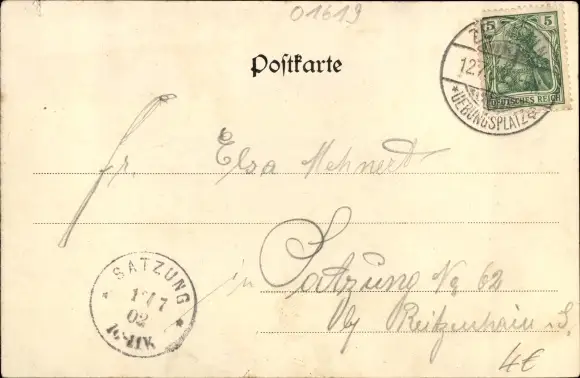 01619
Postkarte
5 5
DEUTSCHES REICH
12.7
* UEBUNGSPLATZ *
Fr. Elsa Mehnert
in Satzung No 62
b/ Reitzenhain i. S.
* SATZUNG *
17 7
02
4€